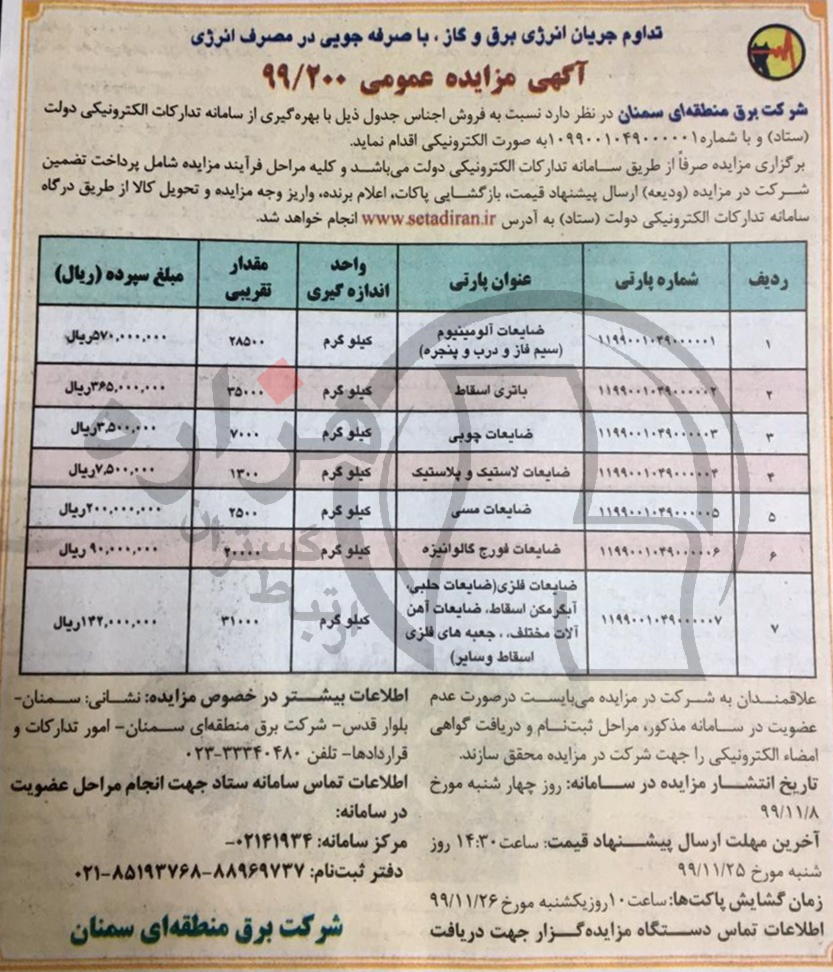 تداوم جریان انرژی برق و گاز ، با صرفه جویی در مصرف انرژی
آگهی مزایده عمومی ۹۹/۲۰۰
شرکت برق منطقه‌ای سمنان در نظر دارد نسبت به فروش اجناس جدول ذیل با بهره‌گیری از سامانه تدارکات الکترونیکی دولت
(ستاد) و با شماره ۱۰۹۹۰۰۱۰۴۹۰۰۰۰۰۱ به صورت الکترونیکی اقدام نماید.
برگزاری مزایده صرفاً از طریق سامانه تدارکات الکترونیکی دولت می‌باشد و کلیه مراحل فرآیند مزایده شامل پرداخت تضمین
شرکت در مزایده (ودیعه) ارسال پیشنهاد قیمت، بازگشایی پاکات، اعلام برنده، واریز وجه مزایده و تحویل کالا از طریق درگاه
سامانه تدارکات الکترونیکی دولت (ستاد) به آدرس www.setadiran.ir انجام خواهد شد.
ردیف شماره پارتی عنوان پارتی واحد اندازه گیری مقدار تقریبی مبلغ سپرده (ریال)
۱ ۱۱۹۹۰۰۱۰۴۹۰۰۰۰۰۱ ضایعات آلومینیوم (سیم فاز و درب و پنجره) کیلو گرم ۲۸۵۰۰ ۵۷۰,۰۰۰,۰۰۰ریال
۲ ۱۱۹۹۰۰۱۰۴۹۰۰۰۰۰۲ باتری اسقاط کیلو گرم ۳۵۰۰۰ ۳۶۵,۰۰۰,۰۰۰ریال
۳ ۱۱۹۹۰۰۱۰۴۹۰۰۰۰۰۳ ضایعات چوبی کیلو گرم ۷۰۰۰ ۳,۵۰۰,۰۰۰ریال
۴ ۱۱۹۹۰۰۱۰۴۹۰۰۰۰۰۴ ضایعات لاستیک و پلاستیک کیلو گرم ۱۳۰۰ ۷,۵۰۰,۰۰۰ریال
۵ ۱۱۹۹۰۰۱۰۴۹۰۰۰۰۰۵ ضایعات مسی کیلو گرم ۲۵۰۰ ۲۰۰,۰۰۰,۰۰۰ریال
۶ ۱۱۹۹۰۰۱۰۴۹۰۰۰۰۰۶ ضایعات فورج گالوانیزه کیلو گرم ۲۰۰۰۰ ۹۰,۰۰۰,۰۰۰ ریال
۷ ۱۱۹۹۰۰۱۰۴۹۰۰۰۰۰۷ ضایعات فلزی(ضایعات حلبی، آبگرمکن اسقاط، ضایعات آهن آلات مختلف، ، جعبه های فلزی اسقاط وسایر) کیلو گرم ۳۱۰۰۰ ۱۴۲,۰۰۰,۰۰۰ریال
علاقمندان به شرکت در مزایده می‌بایست درصورت عدم
عضویت در سامانه مذکور، مراحل ثبت‌نام و دریافت گواهی
امضاء الکترونیکی را جهت شرکت در مزایده محقق سازند.
تاریخ انتشار مزایده در سامانه: روز چهار شنبه مورخ
۹۹/۱۱/۸
آخرین مهلت ارسال پیشنهاد قیمت: ساعت ۱۴:۳۰ روز
شنبه مورخ ۹۹/۱۱/۲۵
زمان گشایش پاکت‌ها: ساعت ۱۰ روزیکشنبه مورخ ۹۹/۱۱/۲۶
اطلاعات تماس دستگاه مزایده‌گزار جهت دریافت
اطلاعات بیشتر در خصوص مزایده: نشانی: سمنان-
بلوار قدس- شرکت برق منطقه‌ای سمنان- امور تدارکات و
قراردادها- تلفن ۳۳۳۴۰۴۸۰-۰۲۳
اطلاعات تماس سامانه ستاد جهت انجام مراحل عضویت
در سامانه:
مرکز سامانه: ۰۲۱۴۱۹۳۴-
دفتر ثبت‌نام: ۸۸۹۶۹۷۳۷-۸۵۱۹۳۷۶۸-۰۲۱
شرکت برق منطقه‌ای سمنان
هزاره